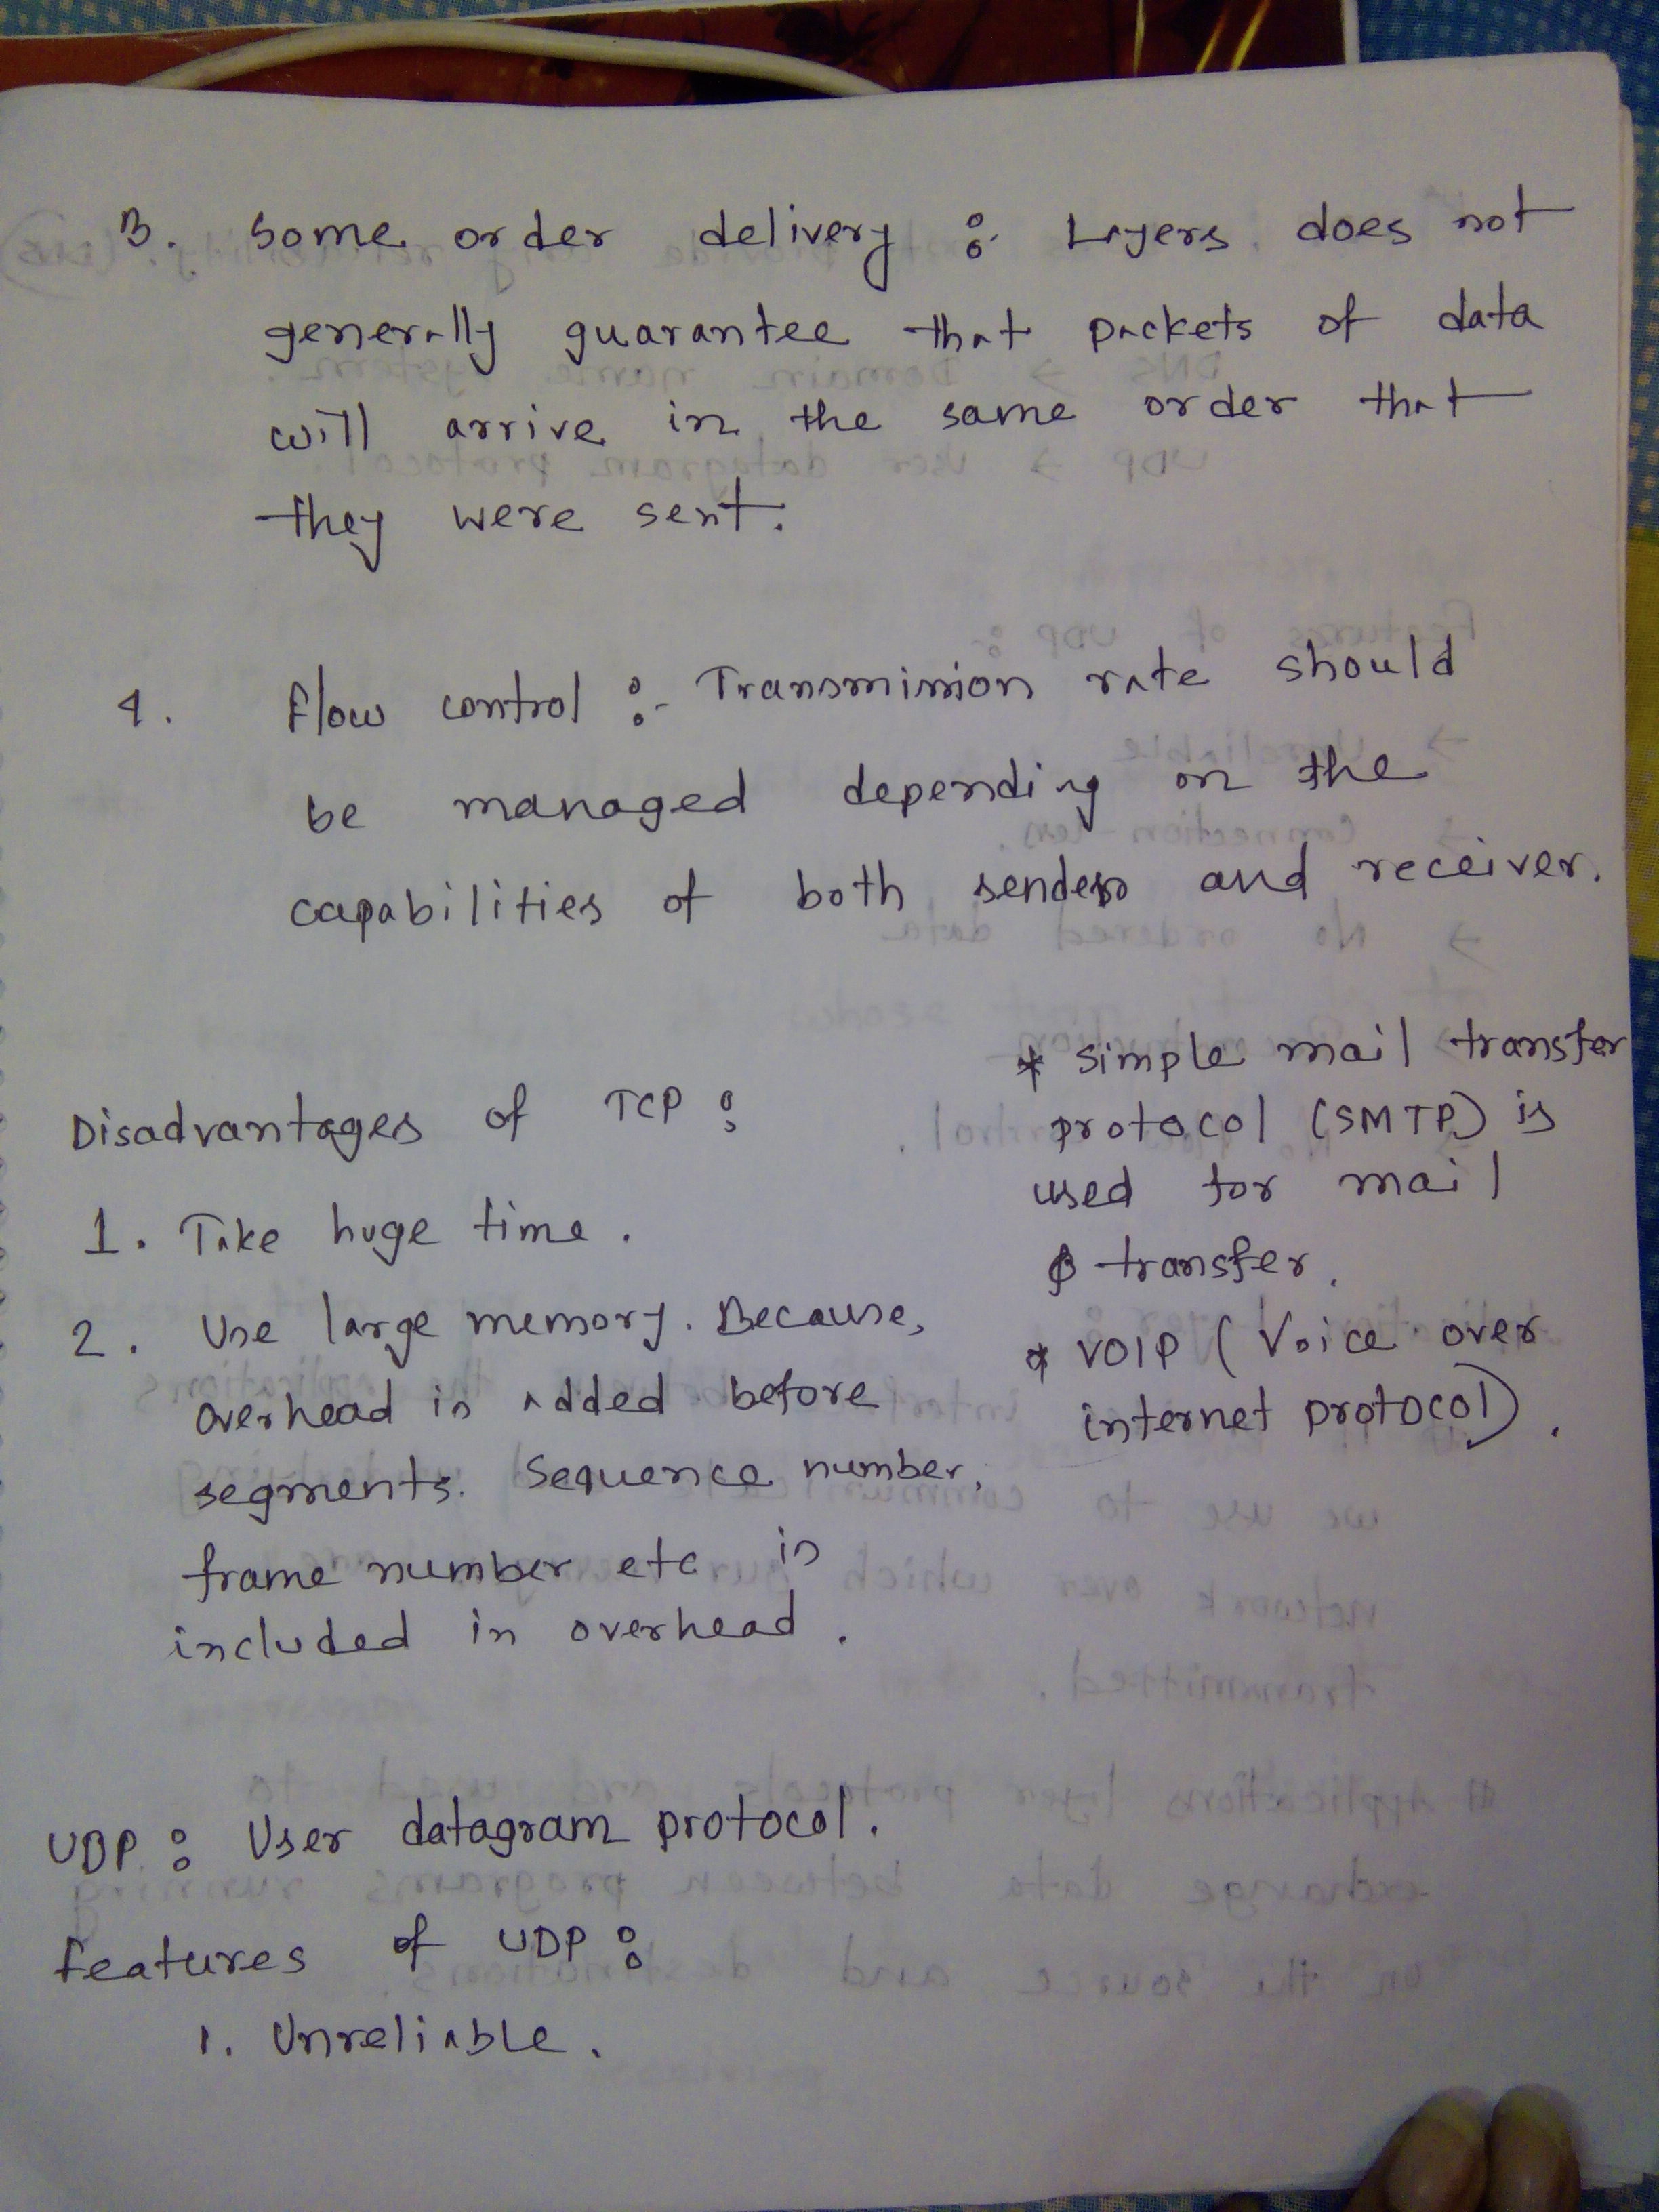 3. Some order delivery : Layers does not
generally guarantee that packets of data
will arrive in the same order that
they were sent.
4. Flow control :- Transmission rate should
be managed depending on the
capabilities of both sender and receiver.
Disadvantages of TCP :
1. Take huge time.
2. Use large memory. Because,
overhead is added before
segments. Sequence number,
frame number etc is
included in overhead.
* simple mail transfer
protocol (SMTP) is
used for mail
transfer.
* VOIP (Voice over
internet protocol).
UDP : User datagram protocol.
Features of UDP :
1. Unreliable.